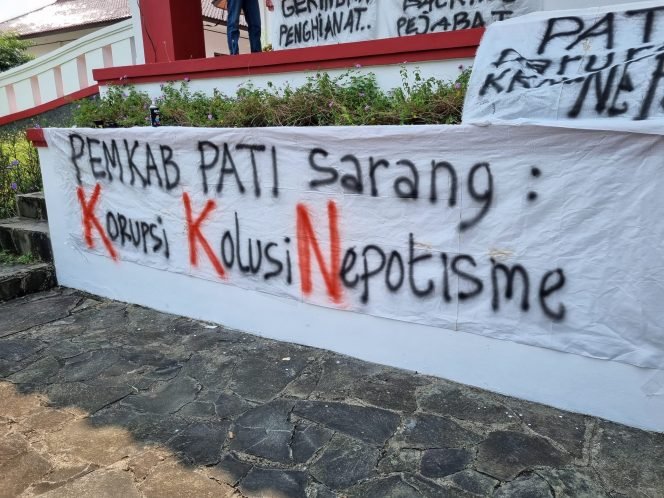 PENGHIANAT..
PEJABAT
PAT
NEP
PEMKAB PATI Sarang :
Korupsi Kolusi Nepotisme